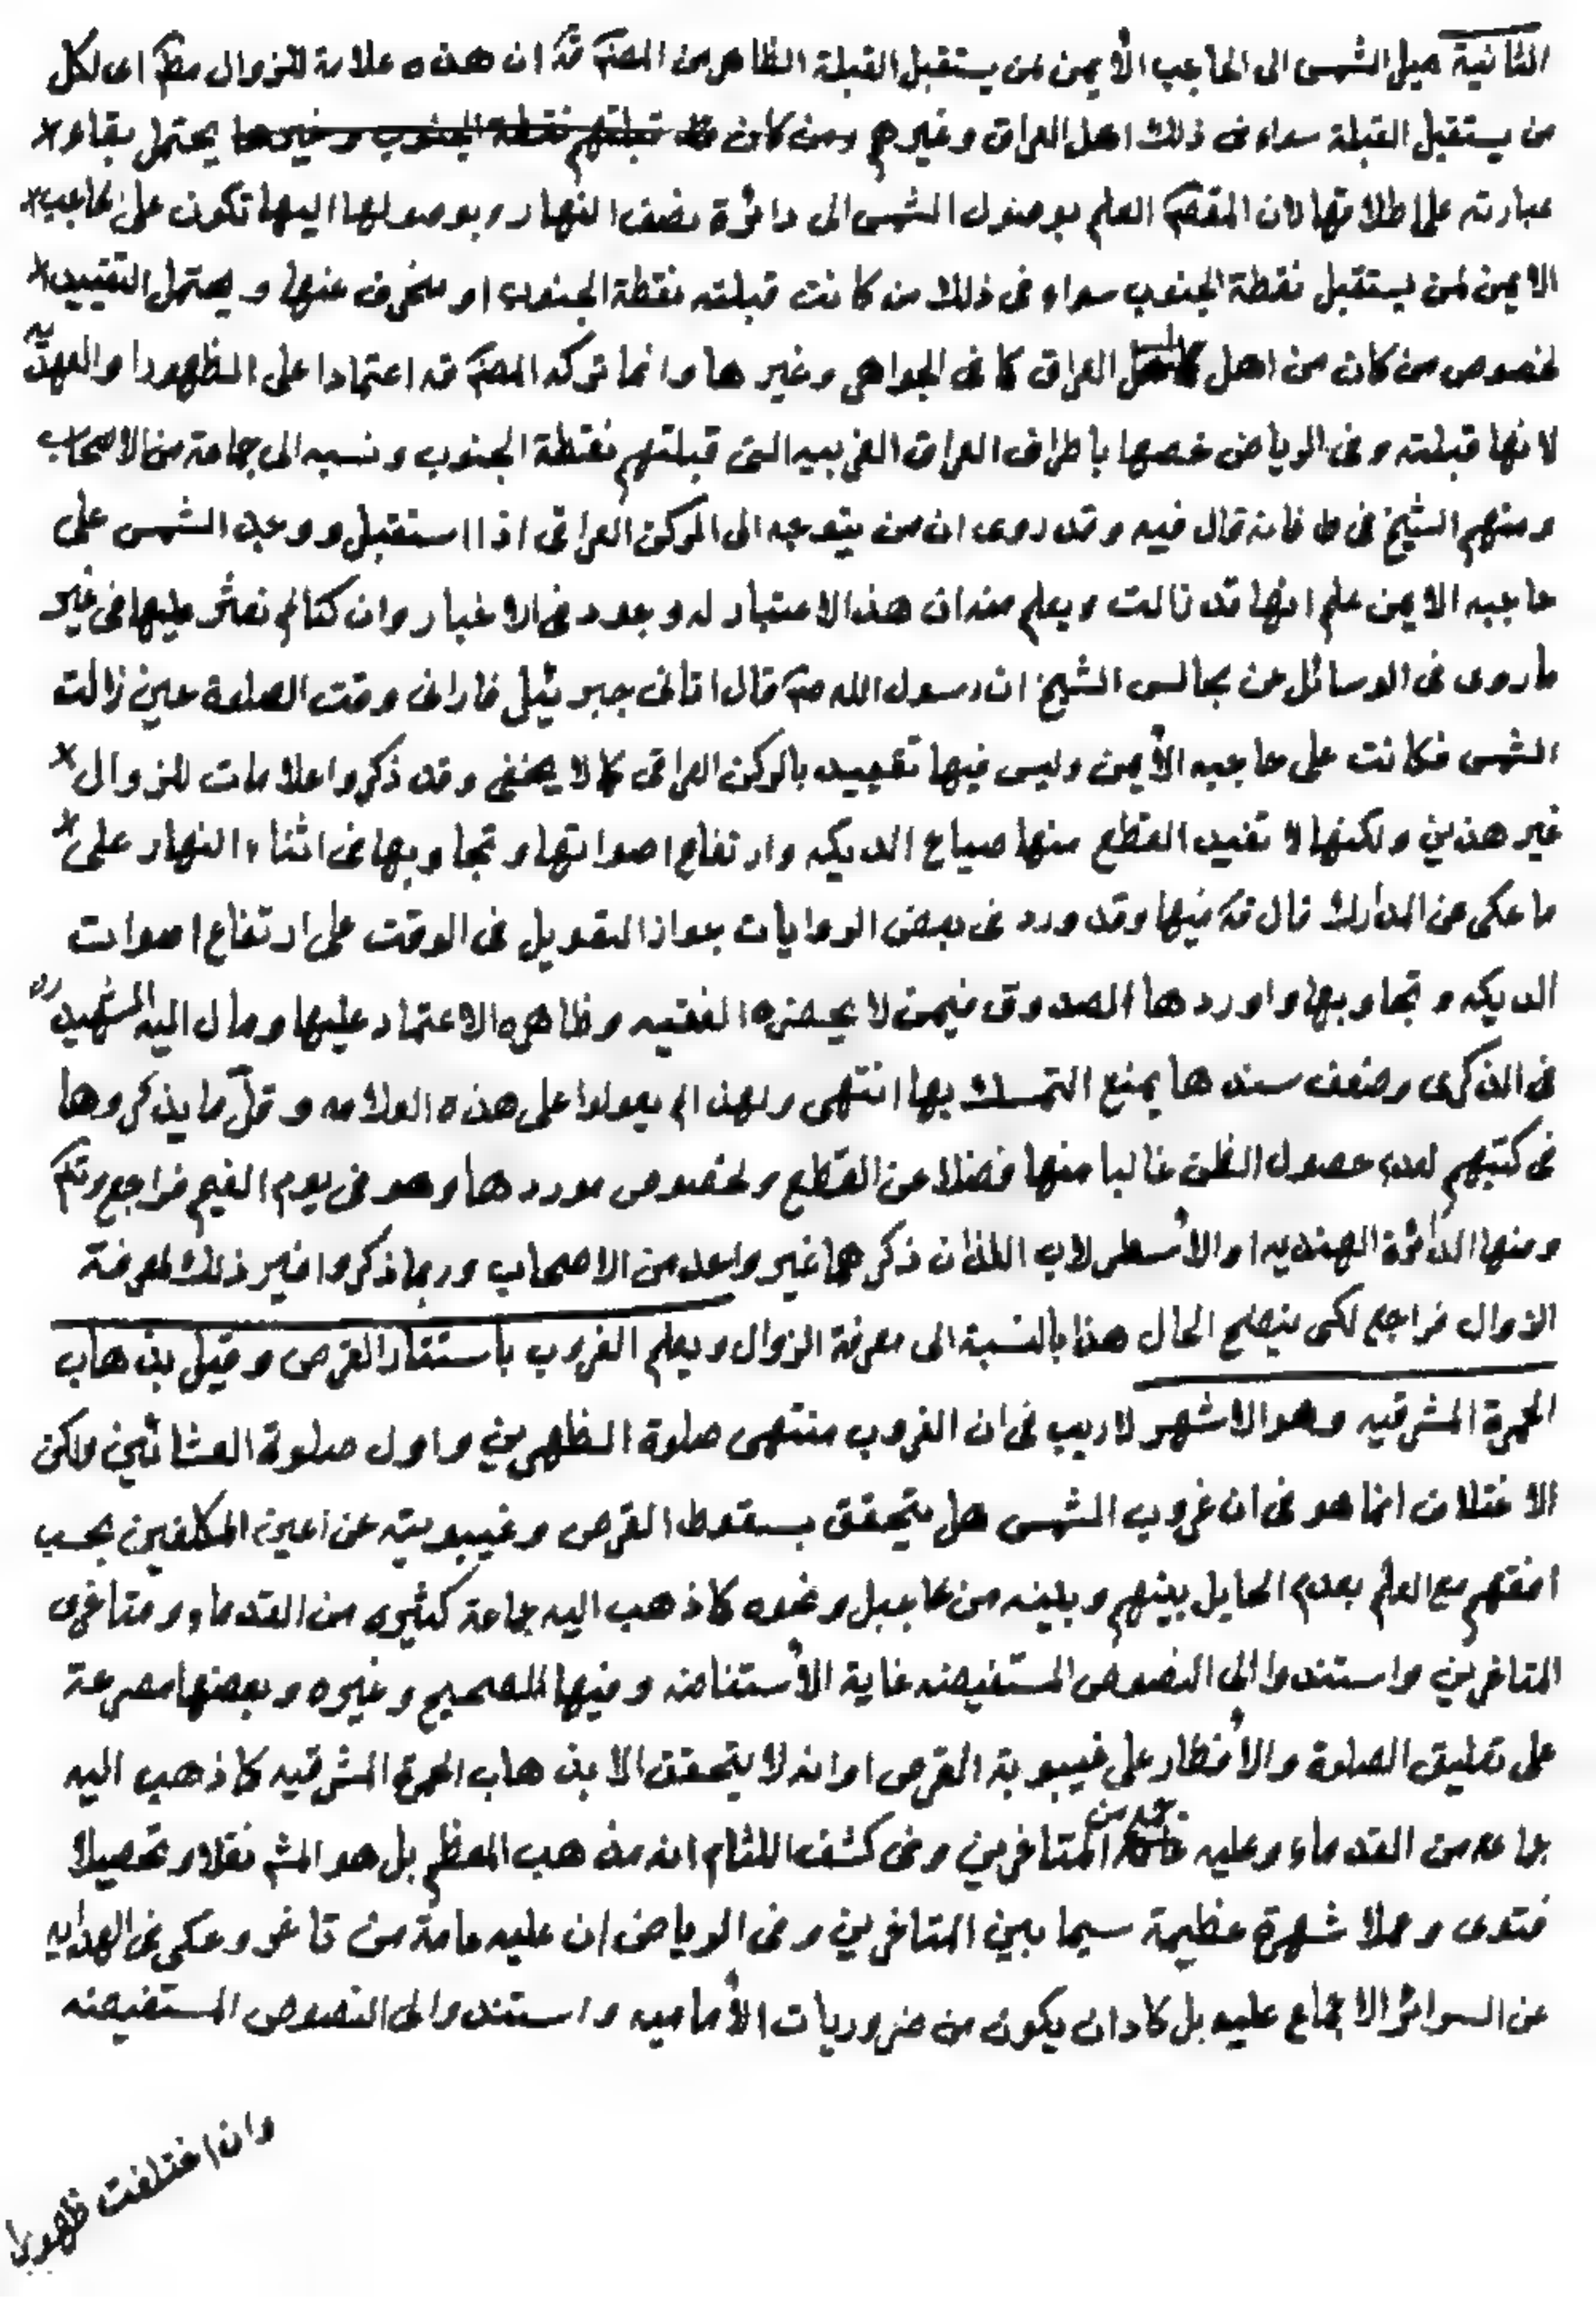 الثانية ميل الشمس الى الحاجب الأيمن لمن يستقبل القبلة الظاهر من المصنف قده ان هذه علامة للزوال مطم اى لكل
من يستقبل القبلة سواء فى ذلك اهل العراق وغيرهم ومن كان قبلتهم نقطة الجنوب وغيرها يحتمل بقاو
عبارته على اطلاقها لان المقصم العلم بوصول الشمس الى دائرة نصف النهار وبوصولها اليها تكون على الحاجب
الايمن لمن يستقبل نقطة الجنوب سواء فى ذلك من كانت قبلته نقطة الجنوب او منحرف عنها ويحتمل التقييد
لخصوص من كان من اهل العراق كما فى الجواهر وغيرها وانما تركه المصنف قده اعتمادا على الظهور او العهديه
لانها قبلته وفى الرياض خصها باطراف العراق الغربيه التى قبلتهم نقطة الجنوب ونسبه الى جماعة من الاصحاب
ومنهم الشيخ فى ط فانه قال فيه وقد روى ان من يتوجه الى الركن العراقى اذا استقبل ووجد الشمس على
حاجبه الايمن علم انها قد زالت ويعلم منه ان هذا الاعتبار له وجود فى الاخبار وان كنا لم نعثر عليها فى غير
ما روى فى الوسائل عن مجالس الشيخ ان رسول الله ص قال اتانى جبرئيل فارانى وقت الصلوة حين زالت
الشمس فكانت على حاجبه الأيمن وليس فيها تقييد بالركن العراقى كما لا يخفى وقد ذكروا علامات للزوال
غير هذين ولكنها لا تفيد القطع منها صياح الديكه وارتفاع اصواتها وتجاوبها فى اثناء النهار على
ما حكى عن المدارك قال قده فيها وقد ورد فى بعض الروايات جواز التعويل فى الوقت على ارتفاع اصوات
الديكه وتجاوبها واوردها الصدوق فيمن لا يحضره الفقيه وظاهره الاعتماد عليها ومال اليه الشهيد ره
فى الذكرى وضعف سندها يمنع التمسك بها انتهى ولهذا لم يعولوا على هذه العلامه وقلّ ما يذكروها
فى كتبهم لعدم حصول الظن غالبا منها فضلا عن القطع ولخصوص موردها وهو فى يوم الغيم فراجع وتم
ومنها الدائرة الهنديه او الأسطرلاب اللذان ذكرهما غير واحد من الاصحاب وربما ذكروا غير ذلك لمعرفة
الزوال فراجع لكى يتضح الحال هذا بالنسبة الى معرفة الزوال ويعلم الغروب باستتار القرص وقيل بذهاب
الحمرة المشرقيه وهو الاشهر لا ريب فى ان الغروب منتهى صلوة الظهرين واول صلوة العشائين ولكن
الاختلاف انما هو فى ان غروب الشمس هل يتحقق بسقوط القرص وغيبوبيته عن اعين المكلفين بحسب
افقهم مع العلم بعدم الحايل بينهم وبينه من جبل ونحوه كما ذهب اليه جماعة كثيره من القدماء ومتاخرى
المتاخرين واستندوا الى النصوص المستفيضه غاية الأستفاضه وفيها الصحيح وغيره وبعضها مصرحة
على تعليق الصلوة والأفطار على غيبوبة القرص او انه لا يتحقق الا بذهاب الحمرة المشرقيه كما ذهب اليه
جماعه من القدماء وعليه المتاخرين وفى كشف اللثام انه مذهب المعظم بل هو المشم نقلا وتحصيلا
فتوى وعملا شهرة عظيمة سيما بين المتاخرين وفى الرياض ان عليه عامة من تاخر وحكى فى الهدايه
عن السرائر الاجماع عليه بل كاد ان يكون من ضروريات الأماميه واستندوا الى النصوص المستفيضه
وان اختلفت ظهورا